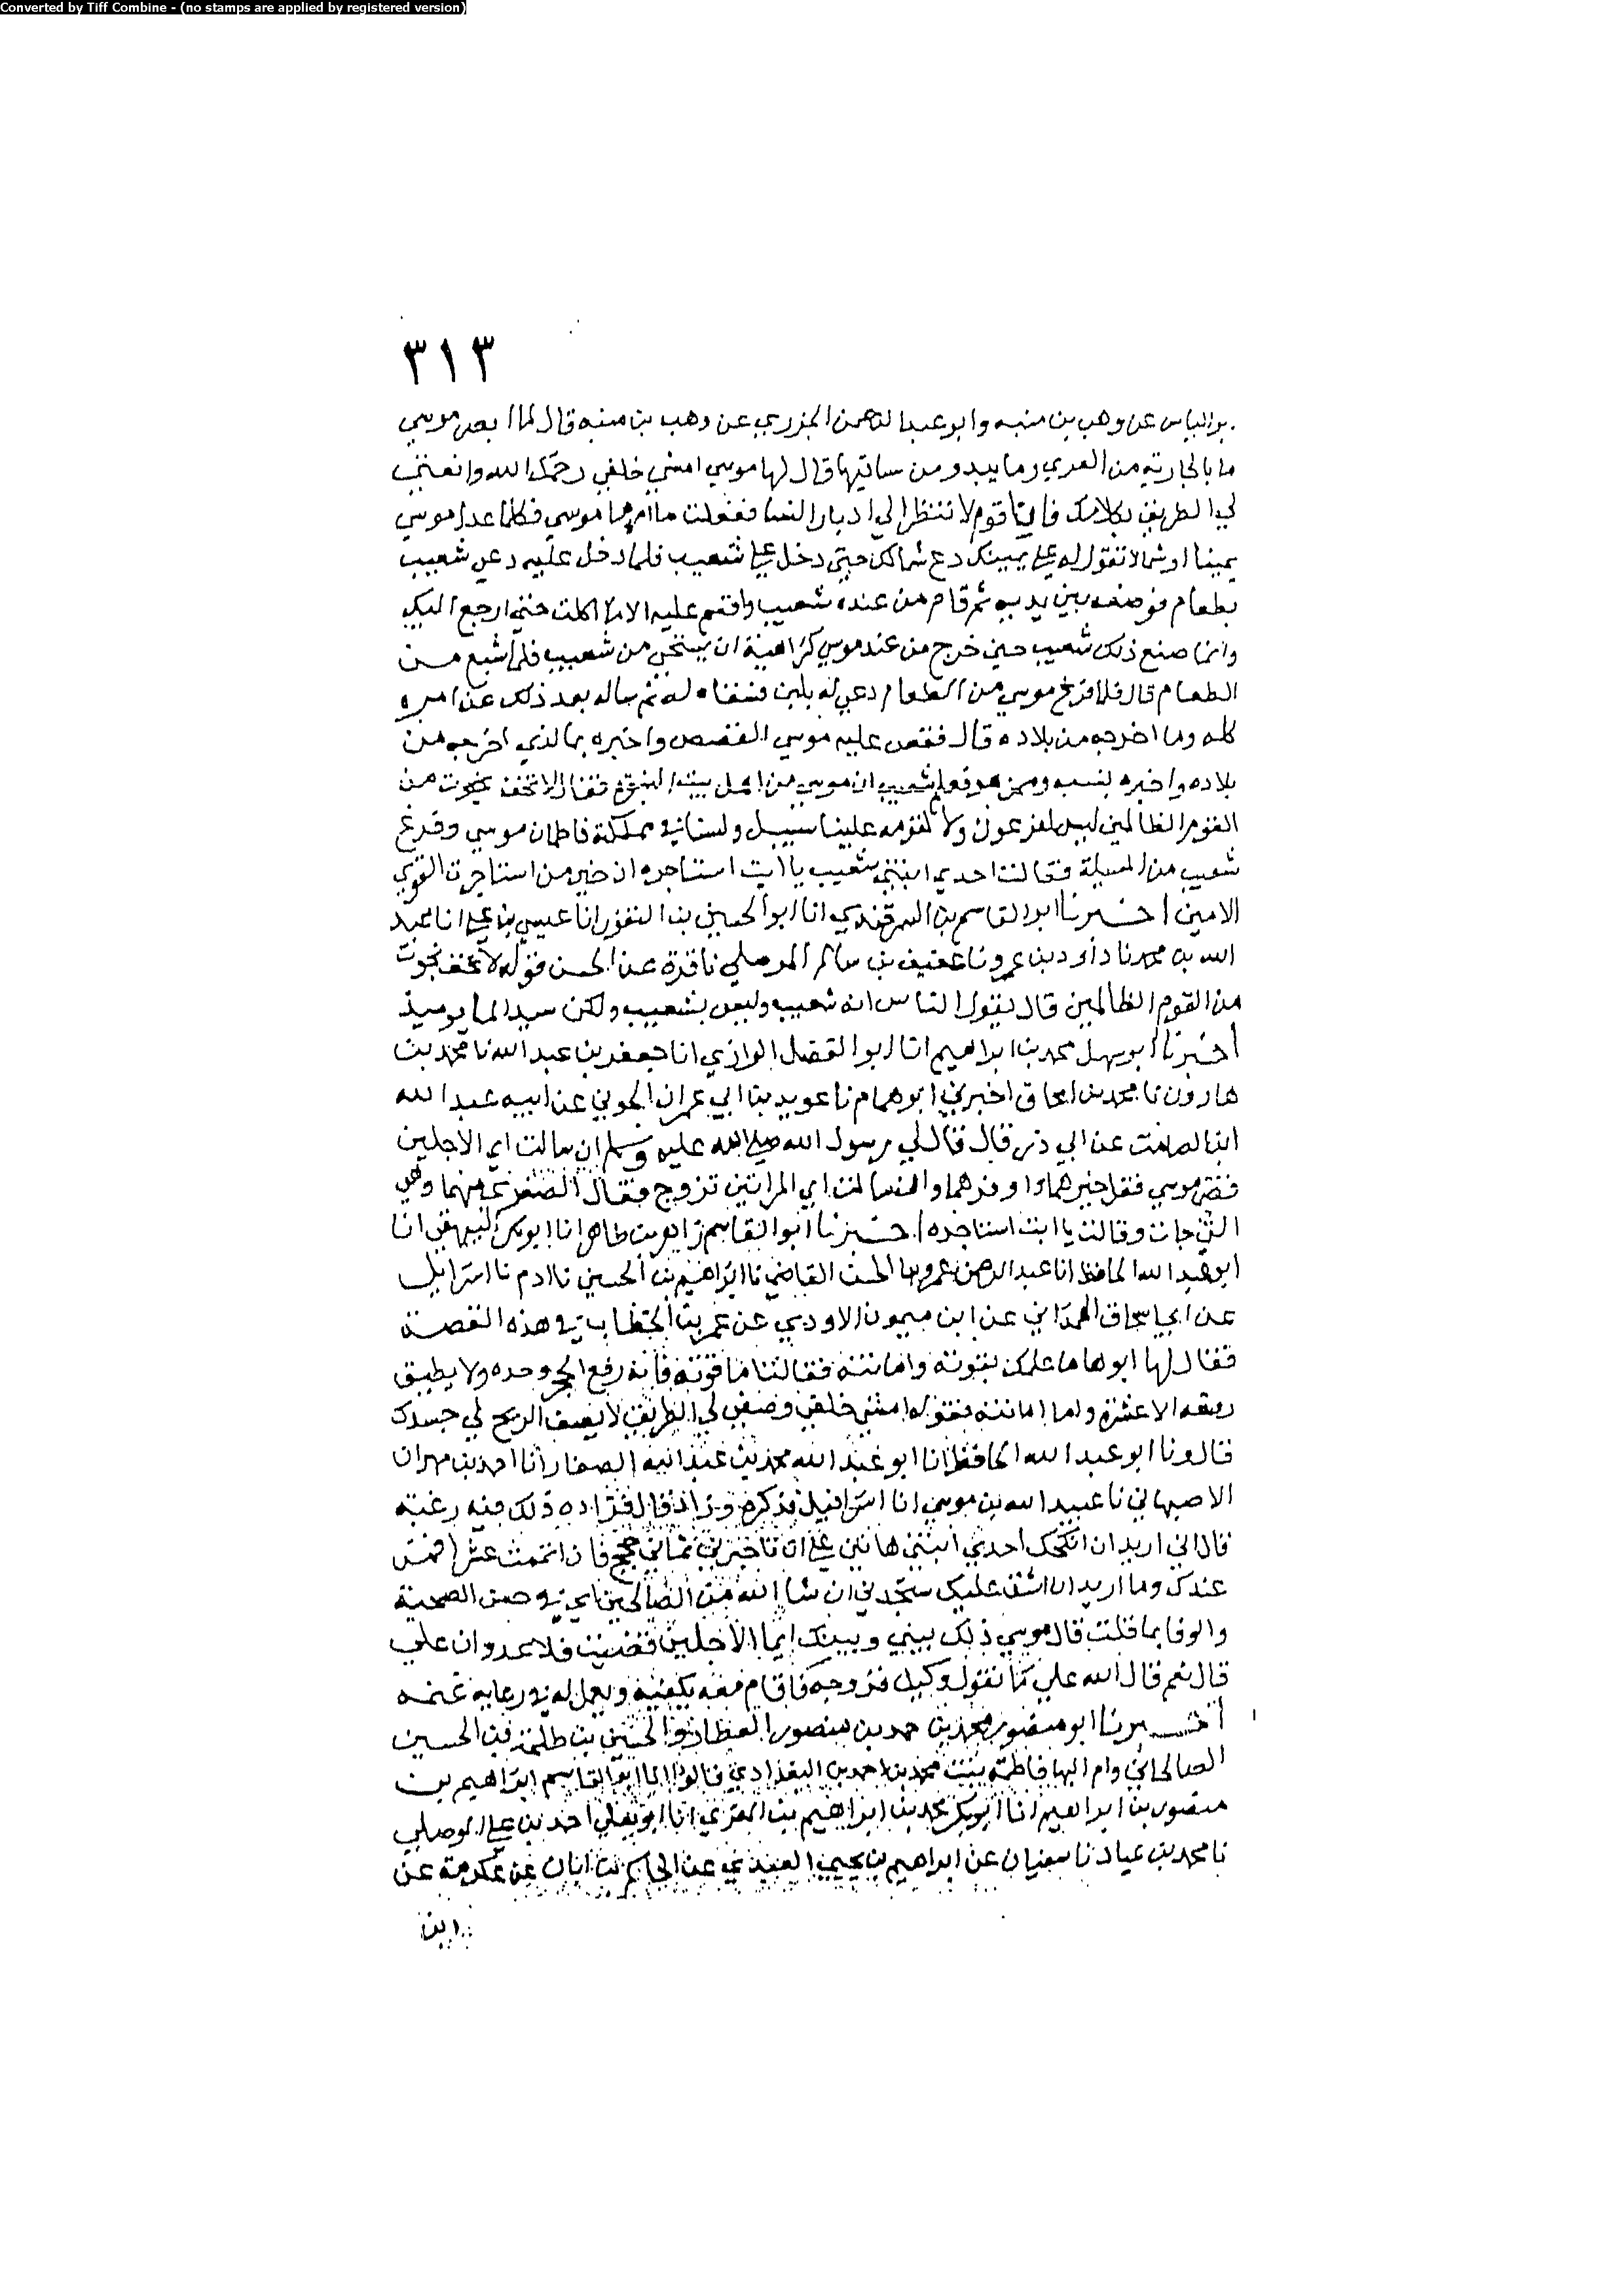 Converted by Tiff Combine - (no stamps are applied by registered version)
٣١٣
عن وهب بن منبه وابو عبد الرحمن الجزري عن وهب بن منبه قال لما ابصر موسي
ما بالجارية من العري وما يبدو من ساقيها قال لها موسي امشي خلفي رحمك الله وانعتي
لي الطريق بكلامك فانا قوم لا ننظر الي ادبار النسا ففعلت ما امرها موسي فكلما عدل موسي
يمينا او شمالا تقول له علي يمينك دع شمالك حتي دخل علي شعيب فلما دخل عليه دعي شعيب
بطعام فوضعه بين يديه ثم قام من عنده شعيب واقسم عليه الا ما اكلت حتي ارجع اليك
وانما صنع ذلك شعيب حين خرج من عند موسي كراهية ان يستحي من شعيب فلما شبع من
الطعام قال فلما فرغ موسي من الطعام دعي له بلبن فسقاه له ثم ساله بعد ذلك عن امره
كله وما اخرجه من بلاده قال فقص عليه موسي القصص واخبره بالذي اخرجه من
بلاده واخبره بنسبه وممن هو فعلم شعيب ان موسي من اهل بيت النبوة فقال لا تخف نجوت من
القوم الظالمين ليس لفرعون ولا لقومه علينا سبيل ولسنا في مملكته فاطمان موسي وفرغ
شعيب من المسيلة فقالت احدي ابنتي شعيب يا ابت استاجره ان خير من استاجرت القوي
الامين اخبرنا ابو القاسم بن السمرقندي انا ابو الحسين بن النقور انا عيسي بن علي انا عبد
الله بن محمد نا داود بن عمرو نا عفيف بن سالم الموصلي نا قرة عن الحسن قوله لا تخف نجوت
من القوم الظالمين قال يقول الناس انه شعيب وليس بشعيب ولكن سيد الما يوميذ
اخبرنا ابو سهل محمد بن ابراهيم انا ابو الفضل الرازي انا جعفر بن عبد الله نا محمد بن
هارون نا محمد بن اسحاق اخبرني ابو همام نا عويد بن ابي عمران الجوني عن ابيه عبد الله
ابن الصامت عن ابي ذر قال قال لي رسول الله صلي الله عليه وسلم ان سالت اي الاجلين
قضي موسي فقل خيرهما واوفرهما وان سالت اي المراتين تزوج فقال الصغري منهما وهي
التي جات وقالت يا ابت استاجره اخبرنا ابو القاسم زاهر بن طاهر انا ابو بكر البيهقي انا
ابو عبد الله الحافظ انا عبد الرحمن بن الحسن القاضي نا ابراهيم بن الحسين نا ادم نا اسرايل
عن ابي اسحاق الهمداني عن ابن ميمون الاودي عن عمر بن الخطاب في هذه القصة
فقال لها ابوها ما علمك بقوته وامانته فقالت اما قوته فانه رفع الحجر وحده ولا يطيق
رفعه الا عشرة واما امانته فقوله امشي خلفي وصفي لي الطريق لا يصف الريح لي جسدك
قال ونا ابو عبد الله الحافظ انا ابو عبد الله محمد بن عبد الله الصفار انا احمد بن مهران
الاصبهاني نا عبيد الله بن موسي انا اسرائيل فذكره وزاد قال فزاده ذلك فيه رغبة
قال اني اريد ان انكحك احدي ابنتي هاتين علي ان تاجرني ثماني حجج فان اتممت عشرا فمن
عندك وما اريد ان اشق عليك ستجدني ان شا الله من الصالحين اي في حسن الصحبة
والوفا بما قلت قال موسي ذلك بيني وبينك ايما الاجلين قضيت فلا عدوان علي
قال نعم قال الله علي ما نقول وكيل فزوجه فاقام معه يكفيه ويعمل له في رعاية غنمه
اخبرنا ابو منصور محمد بن حمد بن منصور العطار والحسين بن طلحة بن الحسين
الصالحاني وام البها فاطمة بنت محمد بن احمد بن البغدادي قالوا انا ابو القاسم ابراهيم بن
منصور بن ابراهيم انا ابو بكر محمد بن ابراهيم بن المقري انا ابو يعلي احمد بن علي الموصلي
نا محمد بن عباد نا سفيان عن ابراهيم بن يحيي العبدي عن الحكم بن ابان عن عكرمة عن
ابن